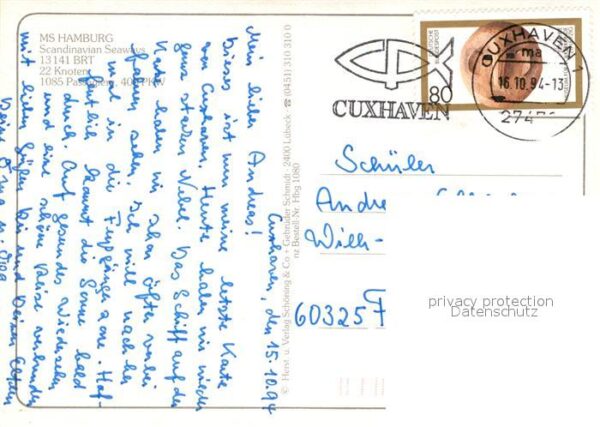 MS HAMBURG
Scandinavian Seaways
13141 BRT
22 Knoten
1085 Passagiere, 400 PKW
Cuxhaven, den 15.10.94
Mein lieber Andreas!
Dieses ist nun meine letzte Karte
von Cuxhaven. Heute haben wir wieder
ganz starken Nebel. Das Schiff auf der
Karte haben wir schon öfter vorbei
fahren sehen. Ich will nachher
mal in die Fußgängerzone. Hof-
fentlich kommt die Sonne bald
durch. Auf gesundes Wiedersehen
und eine schöne Reise verbunden
mit lieben Grüßen Dir und Deinen Eltern
Deine Oma u. Opa
© Herst. u. Verlag Schöning & Co + Gebrüder Schmidt · 2400 Lübeck · ☎ (0451) 310 310 0
Bestell-Nr. Hbg 1080
CUXHAVEN
DEUTSCHE BUNDESPOST
80
CUXHAVEN 1
ma
16.10.94-13
2747
Schüler
Andre
Wilh-
60325 F
privacy protection
Datenschutz